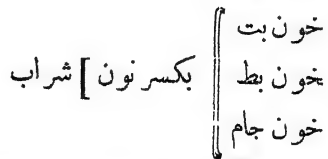 خون بت
خون بط
خون جام
بکسر نون] شراب